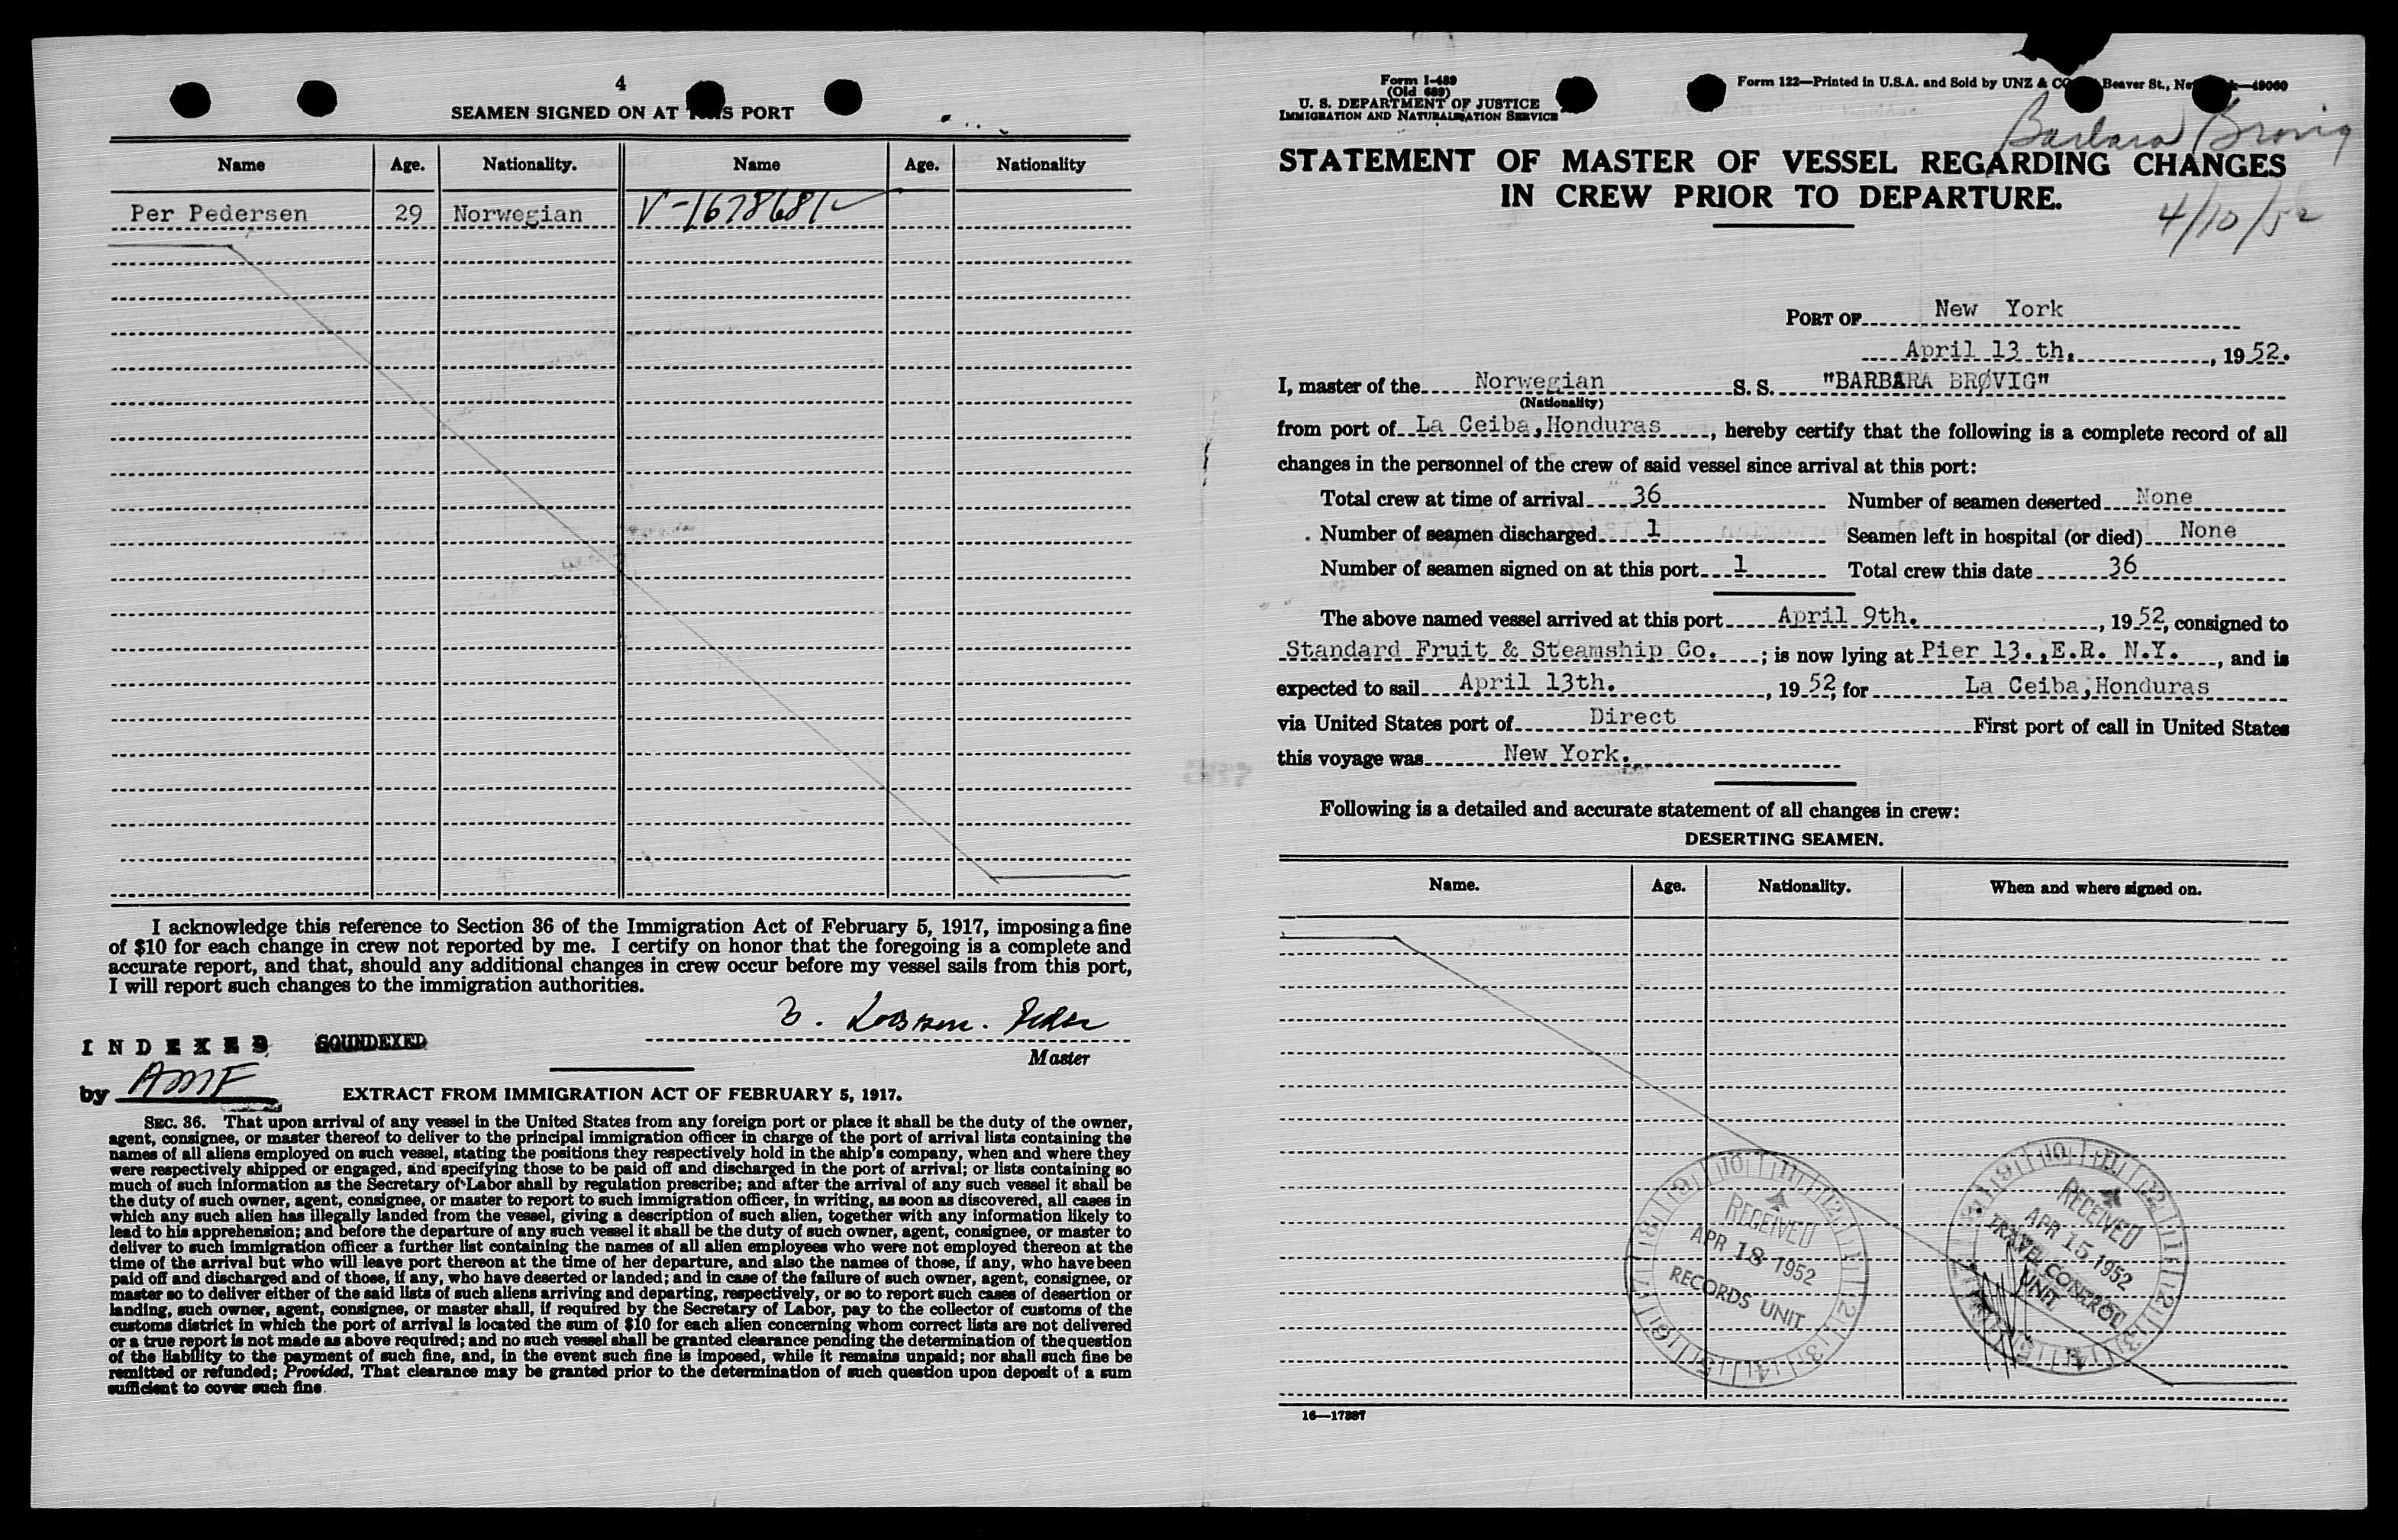 4
SEAMEN SIGNED ON AT THIS PORT
Name Age. Nationality. Name Age. Nationality
Per Pedersen 29 Norwegian V-1678681
I acknowledge this reference to Section 36 of the Immigration Act of February 5, 1917, imposing a fine
of $10 for each change in crew not reported by me. I certify on honor that the foregoing is a complete and
accurate report, and that, should any additional changes in crew occur before my vessel sails from this port,
I will report such changes to the immigration authorities.
Master
INDEXED SOUNDEXED
by AMF
EXTRACT FROM IMMIGRATION ACT OF FEBRUARY 5, 1917.
SEC. 36. That upon arrival of any vessel in the United States from any foreign port or place it shall be the duty of the owner,
agent, consignee, or master thereof to deliver to the principal immigration officer in charge of the port of arrival lists containing the
names of all aliens employed on such vessel, stating the positions they respectively hold in the ship's company, when and where they
were respectively shipped or engaged, and specifying those to be paid off and discharged in the port of arrival; or lists containing so
much of such information as the Secretary of Labor shall by regulation prescribe; and after the arrival of any such vessel it shall be
the duty of such owner, agent, consignee, or master to report to such immigration officer, in writing, as soon as discovered, all cases in
which any such alien has illegally landed from the vessel, giving a description of such alien, together with any information likely to
lead to his apprehension; and before the departure of any such vessel it shall be the duty of such owner, agent, consignee, or master to
deliver to such immigration officer a further list containing the names of all alien employees who were not employed thereon at the
time of the arrival but who will leave port thereon at the time of her departure, and also the names of those, if any, who have been
paid off and discharged and of those, if any, who have deserted or landed; and in case of the failure of such owner, agent, consignee, or
master so to deliver either of the said lists of such aliens arriving and departing, respectively, or so to report such cases of desertion or
landing, such owner, agent, consignee, or master shall, if required by the Secretary of Labor, pay to the collector of customs of the
customs district in which the port of arrival is located the sum of $10 for each alien concerning whom correct lists are not delivered
or a true report is not made as above required; and no such vessel shall be granted clearance pending the determination of the question
of the liability to the payment of such fine, and, in the event such fine is imposed, while it remains unpaid; nor shall such fine be
remitted or refunded; Provided, That clearance may be granted prior to the determination of such question upon deposit of a sum
sufficient to cover such fine.
Form I-489
(Old 689)
U. S. DEPARTMENT OF JUSTICE
IMMIGRATION AND NATURALIZATION SERVICE
Form 122—Printed in U.S.A. and Sold by UNZ & CO Beaver St., —49060
Barbara Brovig
STATEMENT OF MASTER OF VESSEL REGARDING CHANGES
IN CREW PRIOR TO DEPARTURE.
4/10/52
PORT OF New York
April 13 th. , 1952.
I, master of the Norwegian S. S. "BARBARA BRØVIG"
(Nationality)
from port of La Ceiba, Honduras , hereby certify that the following is a complete record of all
changes in the personnel of the crew of said vessel since arrival at this port:
Total crew at time of arrival 36 Number of seamen deserted None
Number of seamen discharged 1 Seamen left in hospital (or died) None
Number of seamen signed on at this port 1 Total crew this date 36
The above named vessel arrived at this port April 9th. , 1952, consigned to
Standard Fruit & Steamship Co. ; is now lying at Pier 13., E.R. N.Y. , and is
expected to sail April 13th. , 1952, for La Ceiba, Honduras
via United States port of Direct First port of call in United States
this voyage was New York.
Following is a detailed and accurate statement of all changes in crew:
DESERTING SEAMEN.
Name. Age. Nationality. When and where signed on.
RECEIVED
APR 18 1952
RECORDS UNIT
RECEIVED
APR 15 1952
TRAVEL CONTROL
UNIT
16—17397